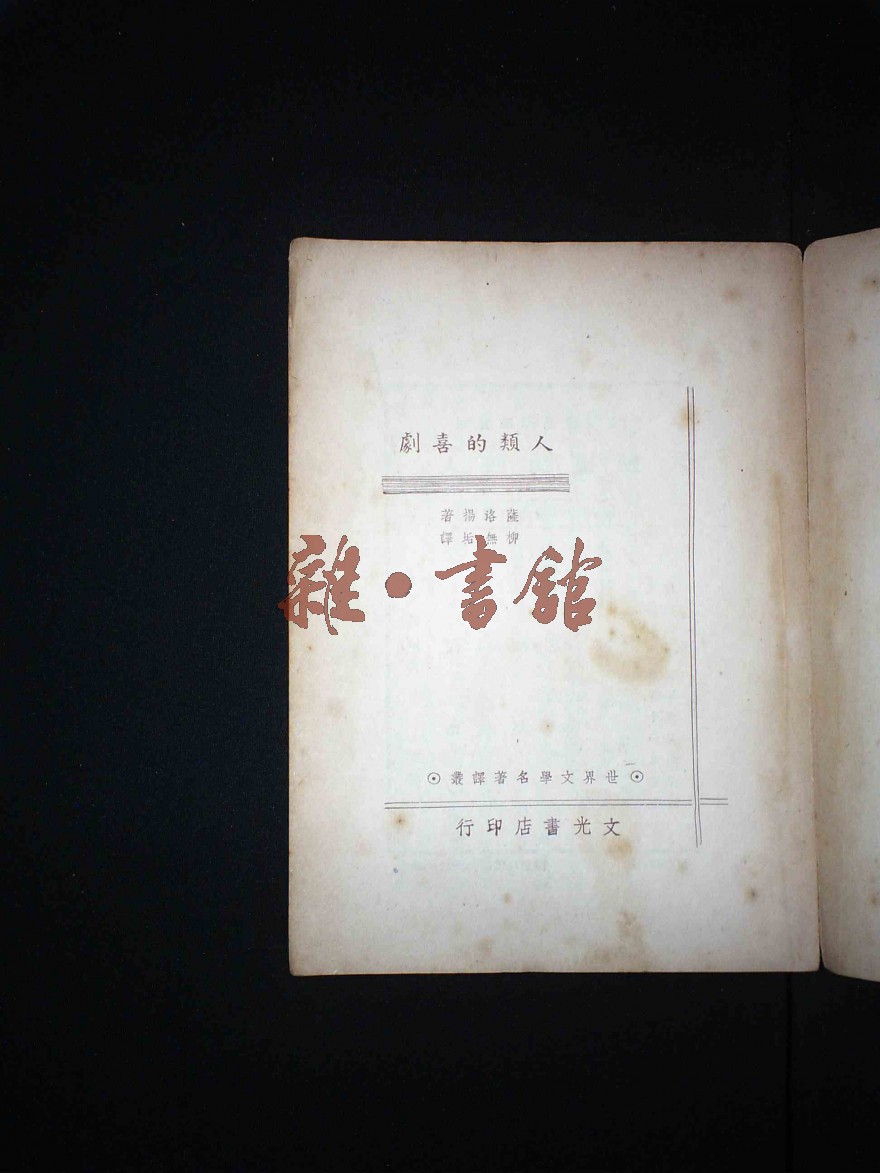 人類的喜劇
薩洛揚著
柳無垢譯
雜·書館
⊙世界文學名著譯叢⊙
文光書店印行